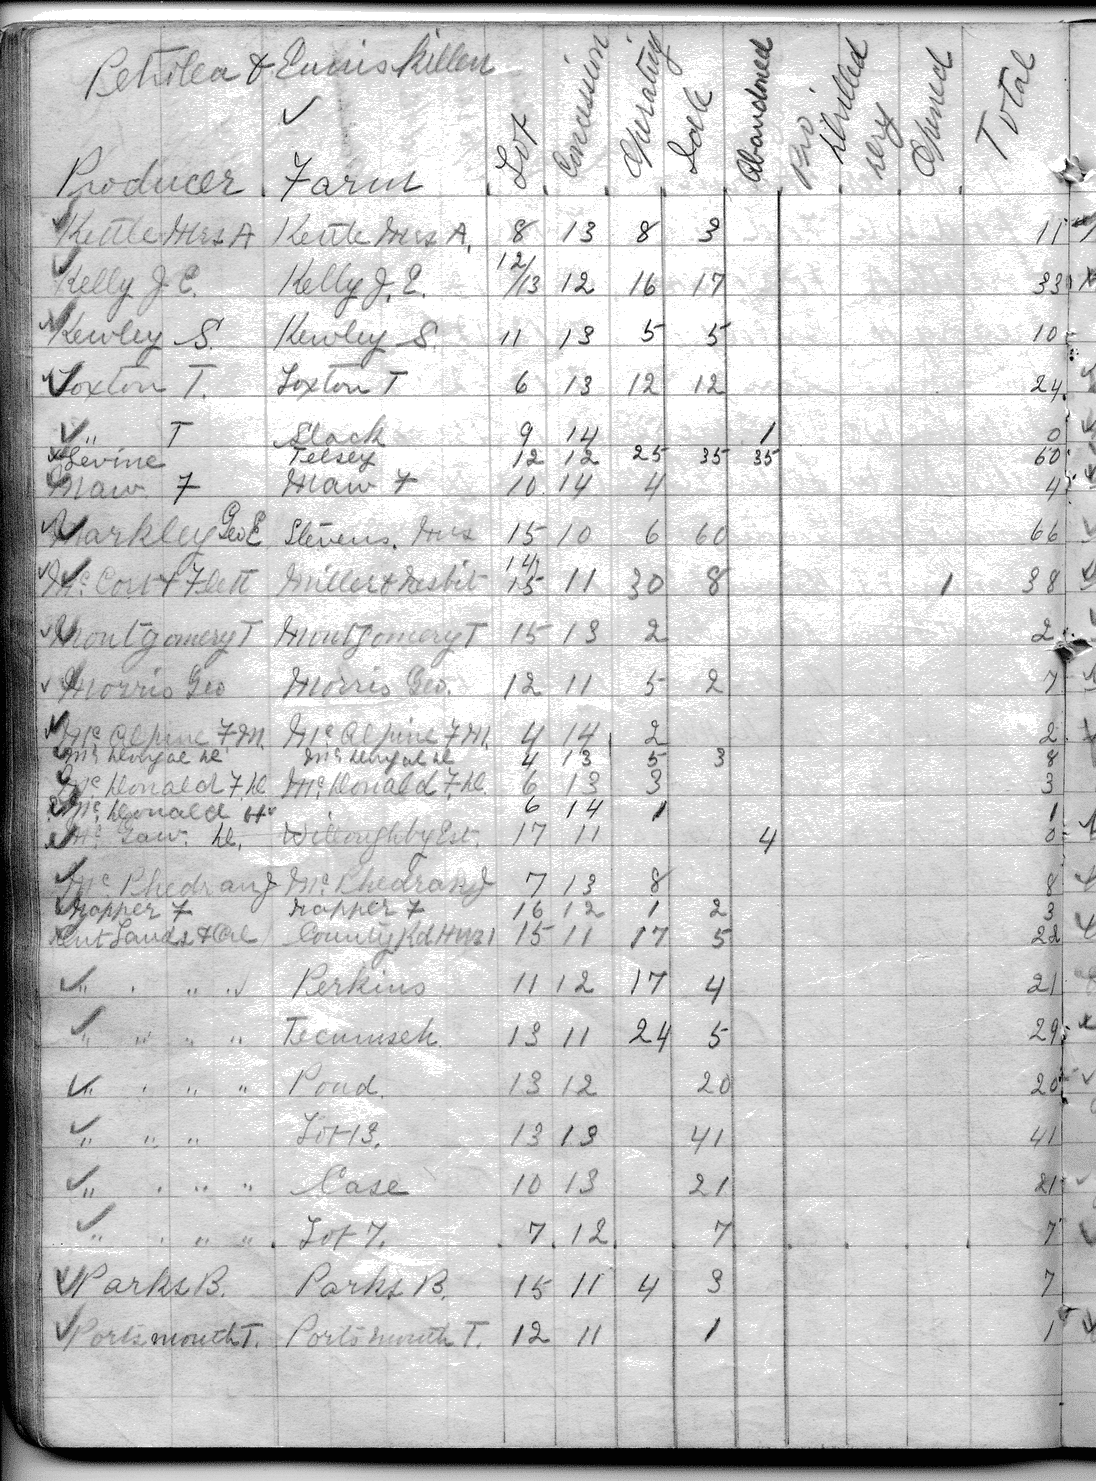 Petrolea & Enniskillen
✓
Producer Farm Lot Concession Operating Idle Abandoned Drilled Opened Total
Kettle Mrs A Kettle Mrs A. 8 13 8 3 11
Kelly J. E. Kelly J. E. 12/13 12 16 17 33
Kewley S. Kewley S. 11 13 5 5 10
Loxton T. Loxton T 6 13 12 12 24
" T Slack 9 14 1 0
Levine Telsey 12 12 25 35 35 60
Maw F Maw F 10 14 4 4
Markley Geo E Stevens, Mrs 15 10 6 60 66
McCort & Flett Miller & Nesbit 14/15 11 30 8 1 38
Montgomery T Montgomery T 15 13 2 2
Morris Geo Morris Geo. 12 11 5 2 7
McAlpine F.M. McAlpine F.M. 4 14 2 2
4 13 5 3 8
McDonald F. D. McDonald F. D. 6 13 3 3
McDonald 6 14 1 1
McGaw. D. Willoughby Est. 17 11 4 0
McPhedran J McPhedran J 7 13 8 8
Napper F Napper F 16 12 1 2 3
Lands & Oil County Rd 15 11 17 5 22
" " " " Perkins 11 12 17 4 21
" " " " Tecumseh 13 11 24 5 29
" " " " Pond. 13 12 20 20
" " " Lot 13. 13 13 41 41
" " " " Case 10 13 21 21
" " " " Lot 7. 7 12 7 7
Parks B. Parks B. 15 11 4 3 7
Portsmouth T. Portsmouth T. 12 11 1 1